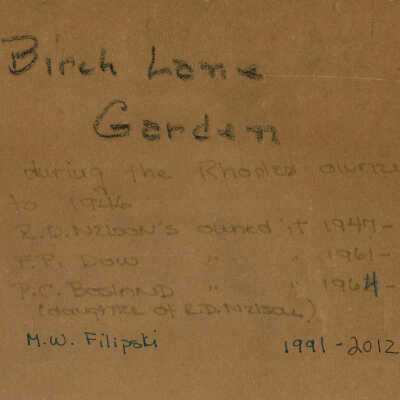 Birch Lane
Garden
during the Rhodes
to 1946
R.D. Nelson's owned it 1947-
F.P. Dow " " 1961-
P.C. Bosland " " 1964-
(daughter of R.D. Nelson)
M.W. Filipski 1991-2012